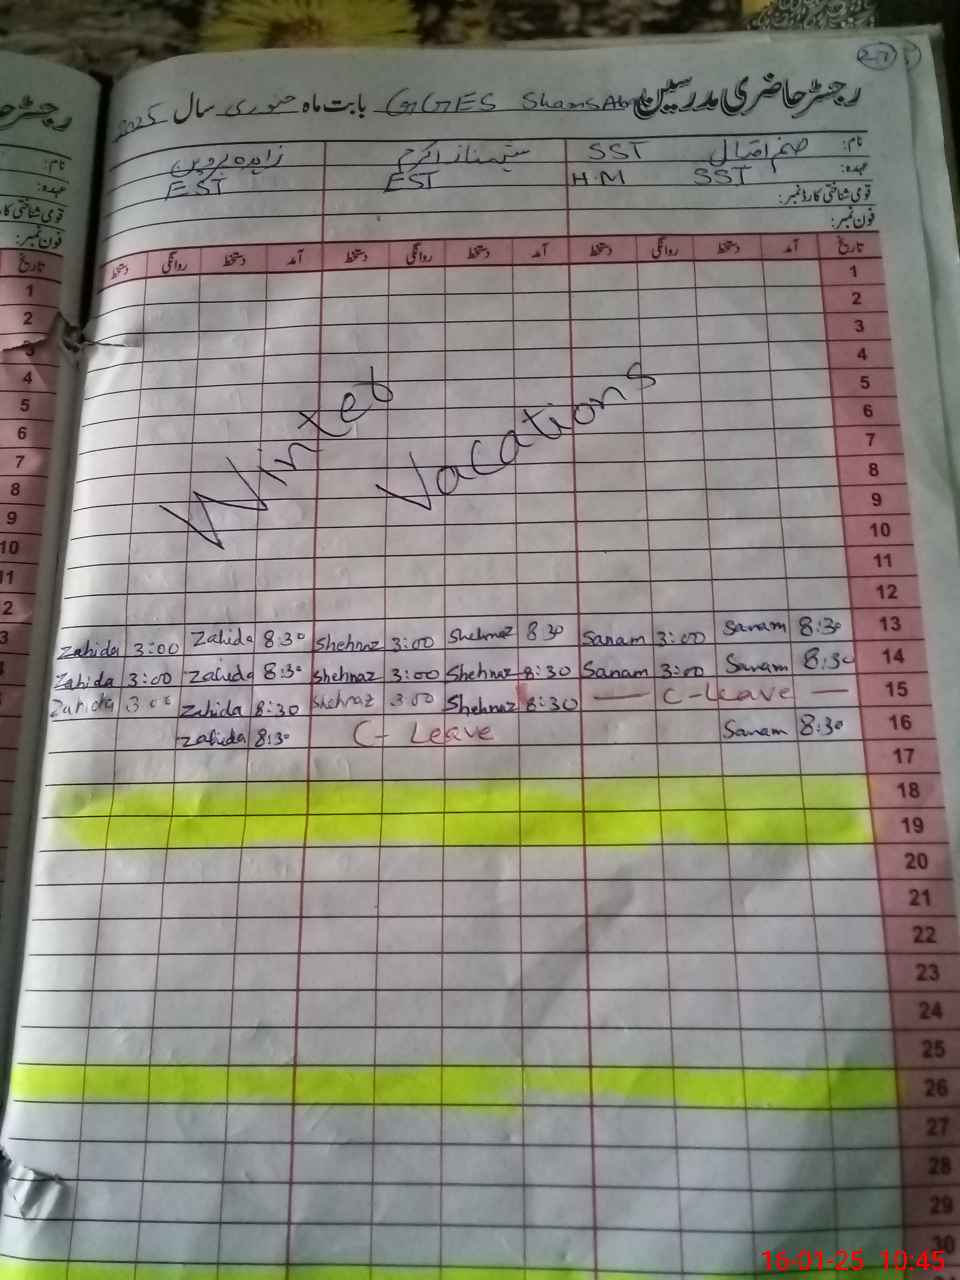 27
رجسٹر حاضری مدرسین GGES ShamsAbad بابت ماہ جنوری سال 2025
نام: صنم اقبال SST شہناز اکرم زاہدہ پروین
عہدہ: SST HM EST EST
قومی شناختی کارڈ نمبر:
فون نمبر:
تاریخ آمد دستخط روانگی دستخط آمد دستخط روانگی دستخط آمد دستخط روانگی دستخط
1
2
3
4
5
6
7
8
9
10
11
12
Winter Vacations
13 8:30 Sanam 3:00 Sanam 8 30 Shehnaz 3:00 Shehnaz 8:30 Zahida 3:00 Zahida
14 8:30 Sanam 3:00 Sanam 8:30 Shehnaz 3:00 Shehnaz 8:30 Zahida 3:00 Zahida
15 — C-Leave — 8:30 Shehnaz 3:00 Shehnaz 8:30 Zahida 3:00 Zahida
16 8:30 Sanam C- Leave 8:30 Zahida
17
18
19
20
21
22
23
24
25
26
27
28
29
30
16-01-25 10:45